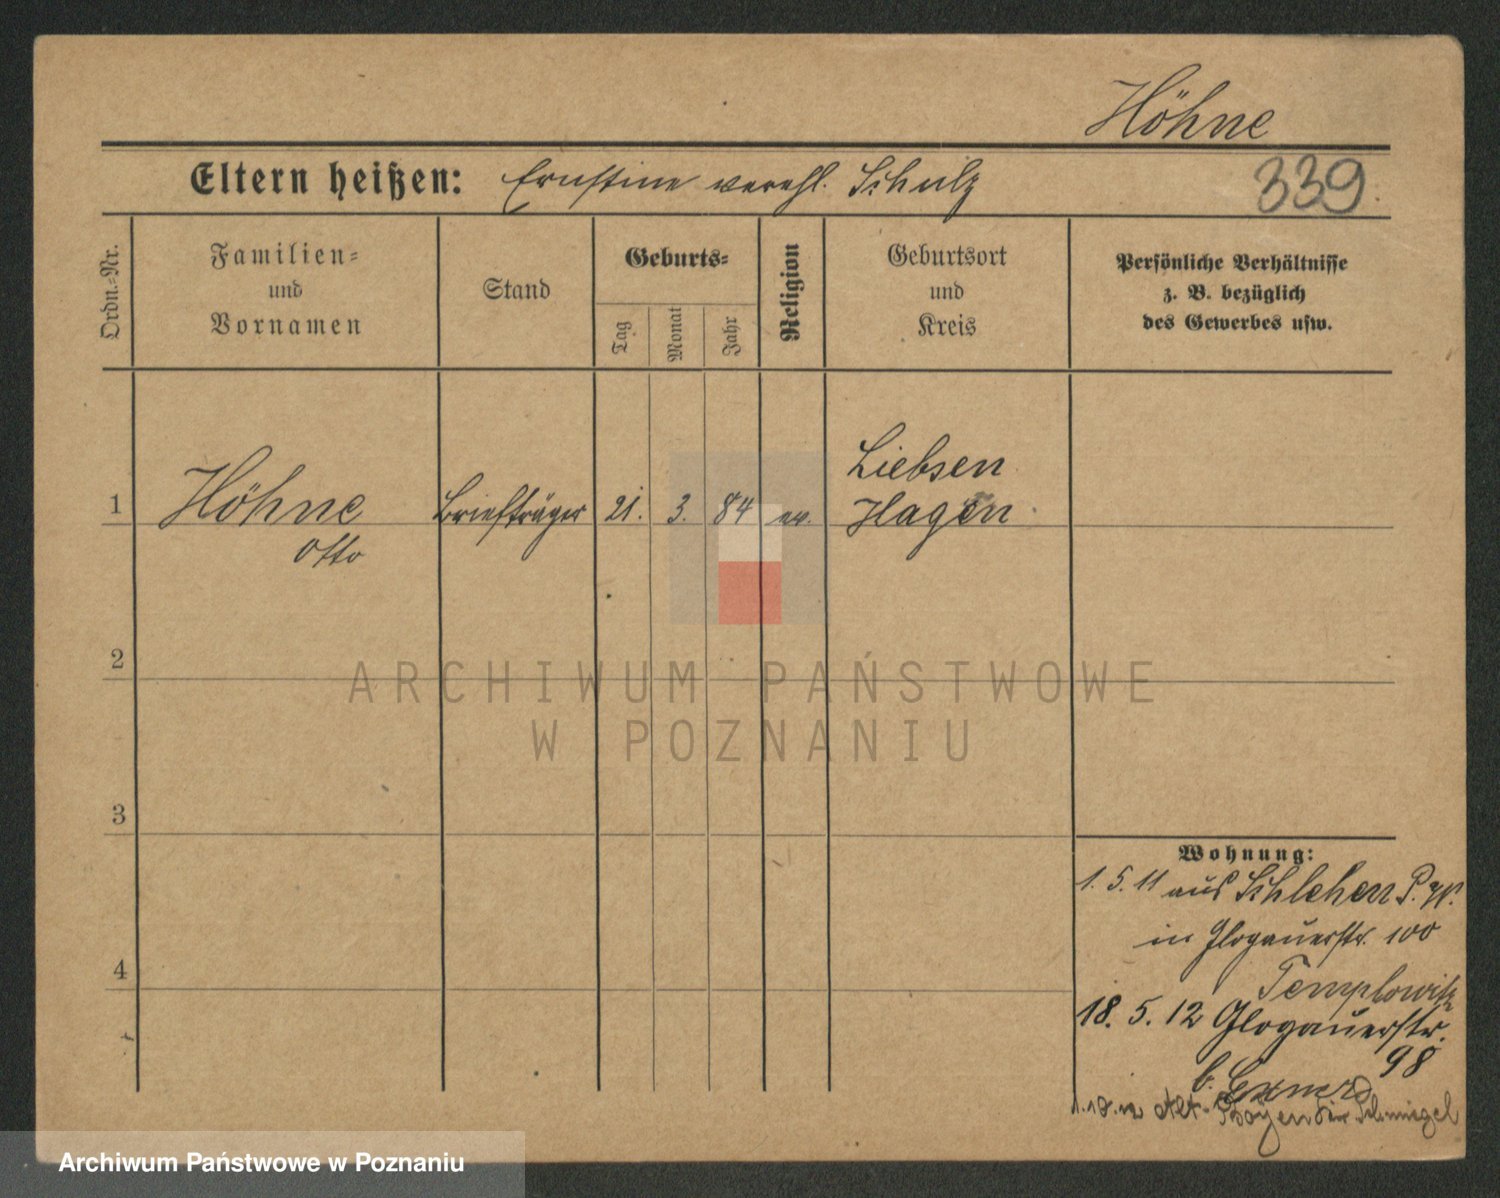 Höhne
Eltern heißen: Ernstine verehl. Schulz
339.
Ordn.-Nr.
Familien-
und
Vornamen
Stand
Geburts-
Tag
Monat
Jahr
Religion
Geburtsort
und
Kreis
Persönliche Verhältnisse
z. B. bezüglich
des Gewerbes usw.
1
Höhne
Otto
Briefträger
21.
3.
84
ev.
Liebsen
Hagen
2
3
4
ARCHIWUM PAŃSTWOWE
W POZNANIU
Wohnung:
1. 5. 11 aus Schlehen P. W.
in Glogauerstr. 100
Templowitz
18. 5. 12 Glogauerstr.
98
b. Exner
Alt- Schmiegel
Archiwum Państwowe w Poznaniu